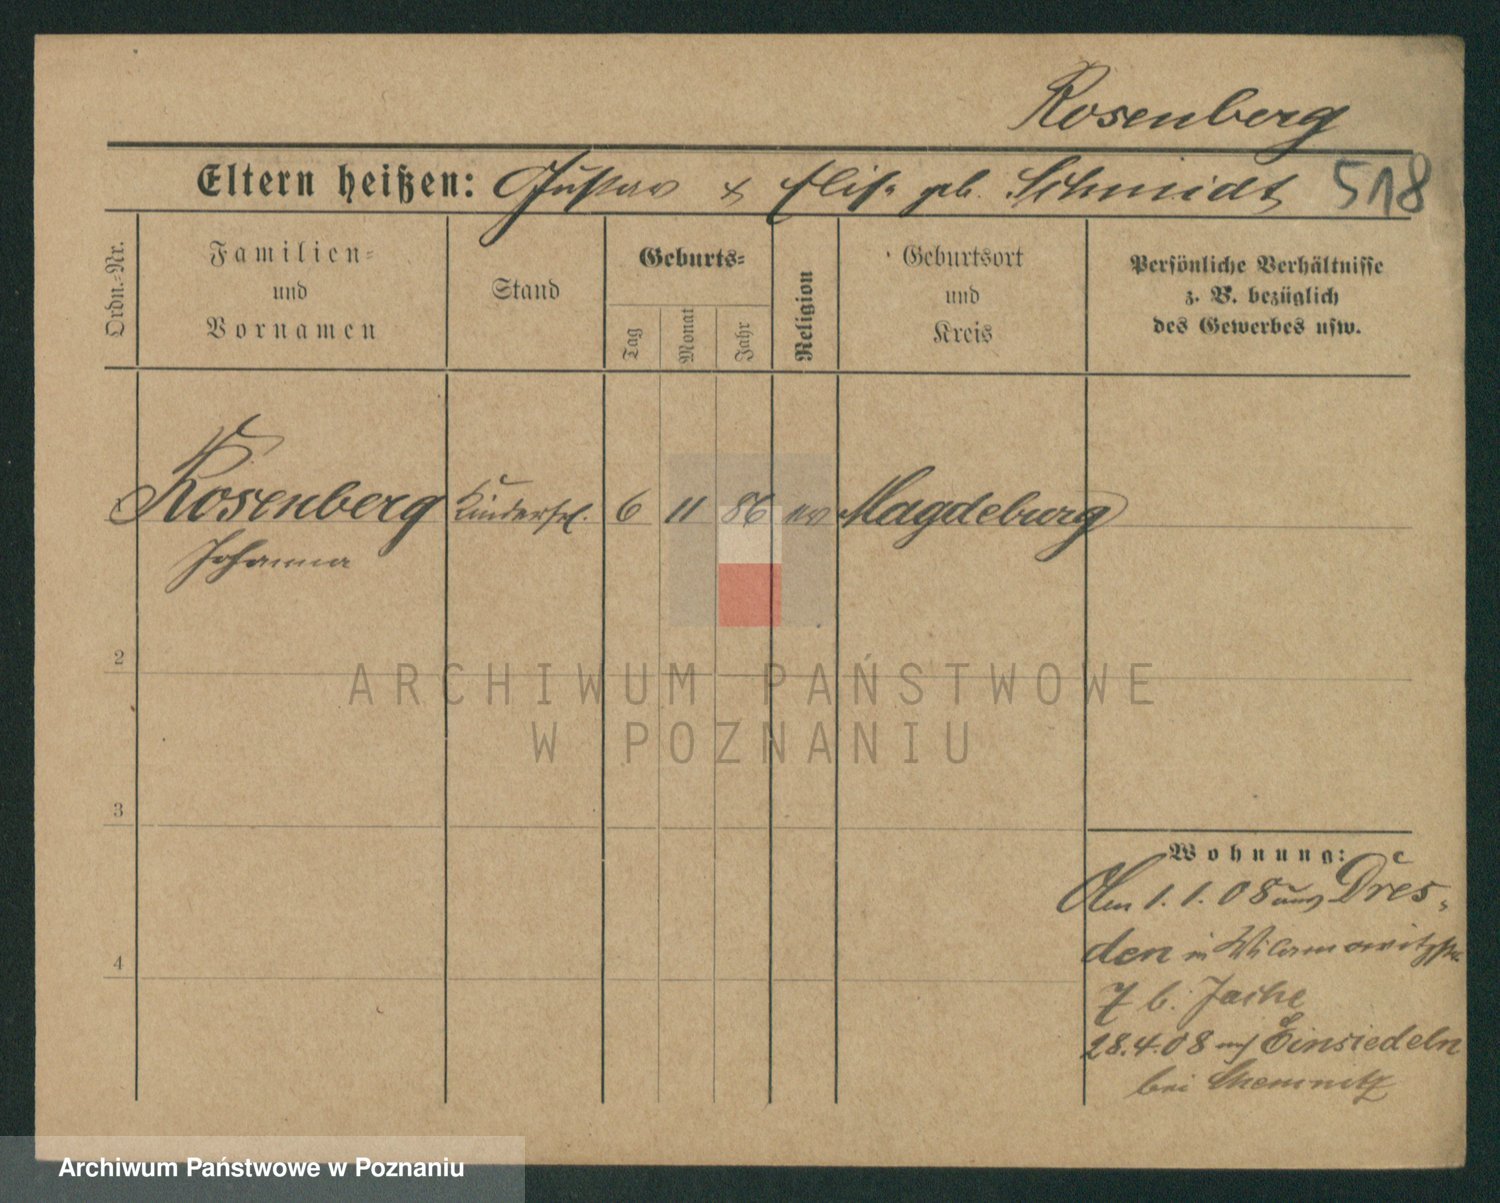 Rosenberg
Eltern heißen: Gustav & Elise geb. Schmidt 518
Ordn.-Nr.
Familien-
und
Vornamen
Stand
Geburts-
Tag
Monat
Jahr
Religion
Geburtsort
und
Kreis
Persönliche Verhältnisse
z. B. bezüglich
des Gewerbes usw.
Rosenberg Kinderfrl. 6 11 86 ev Magdeburg
Johanna
2
3
4
Wohnung:
Am 1.1.08 aus Dres-
den in Wilamowitzstr.
7 b.
28.4.08 auf Einsiedeln
bei Chemnitz
ARCHIWUM PAŃSTWOWE
W POZNANIU
Archiwum Państwowe w Poznaniu